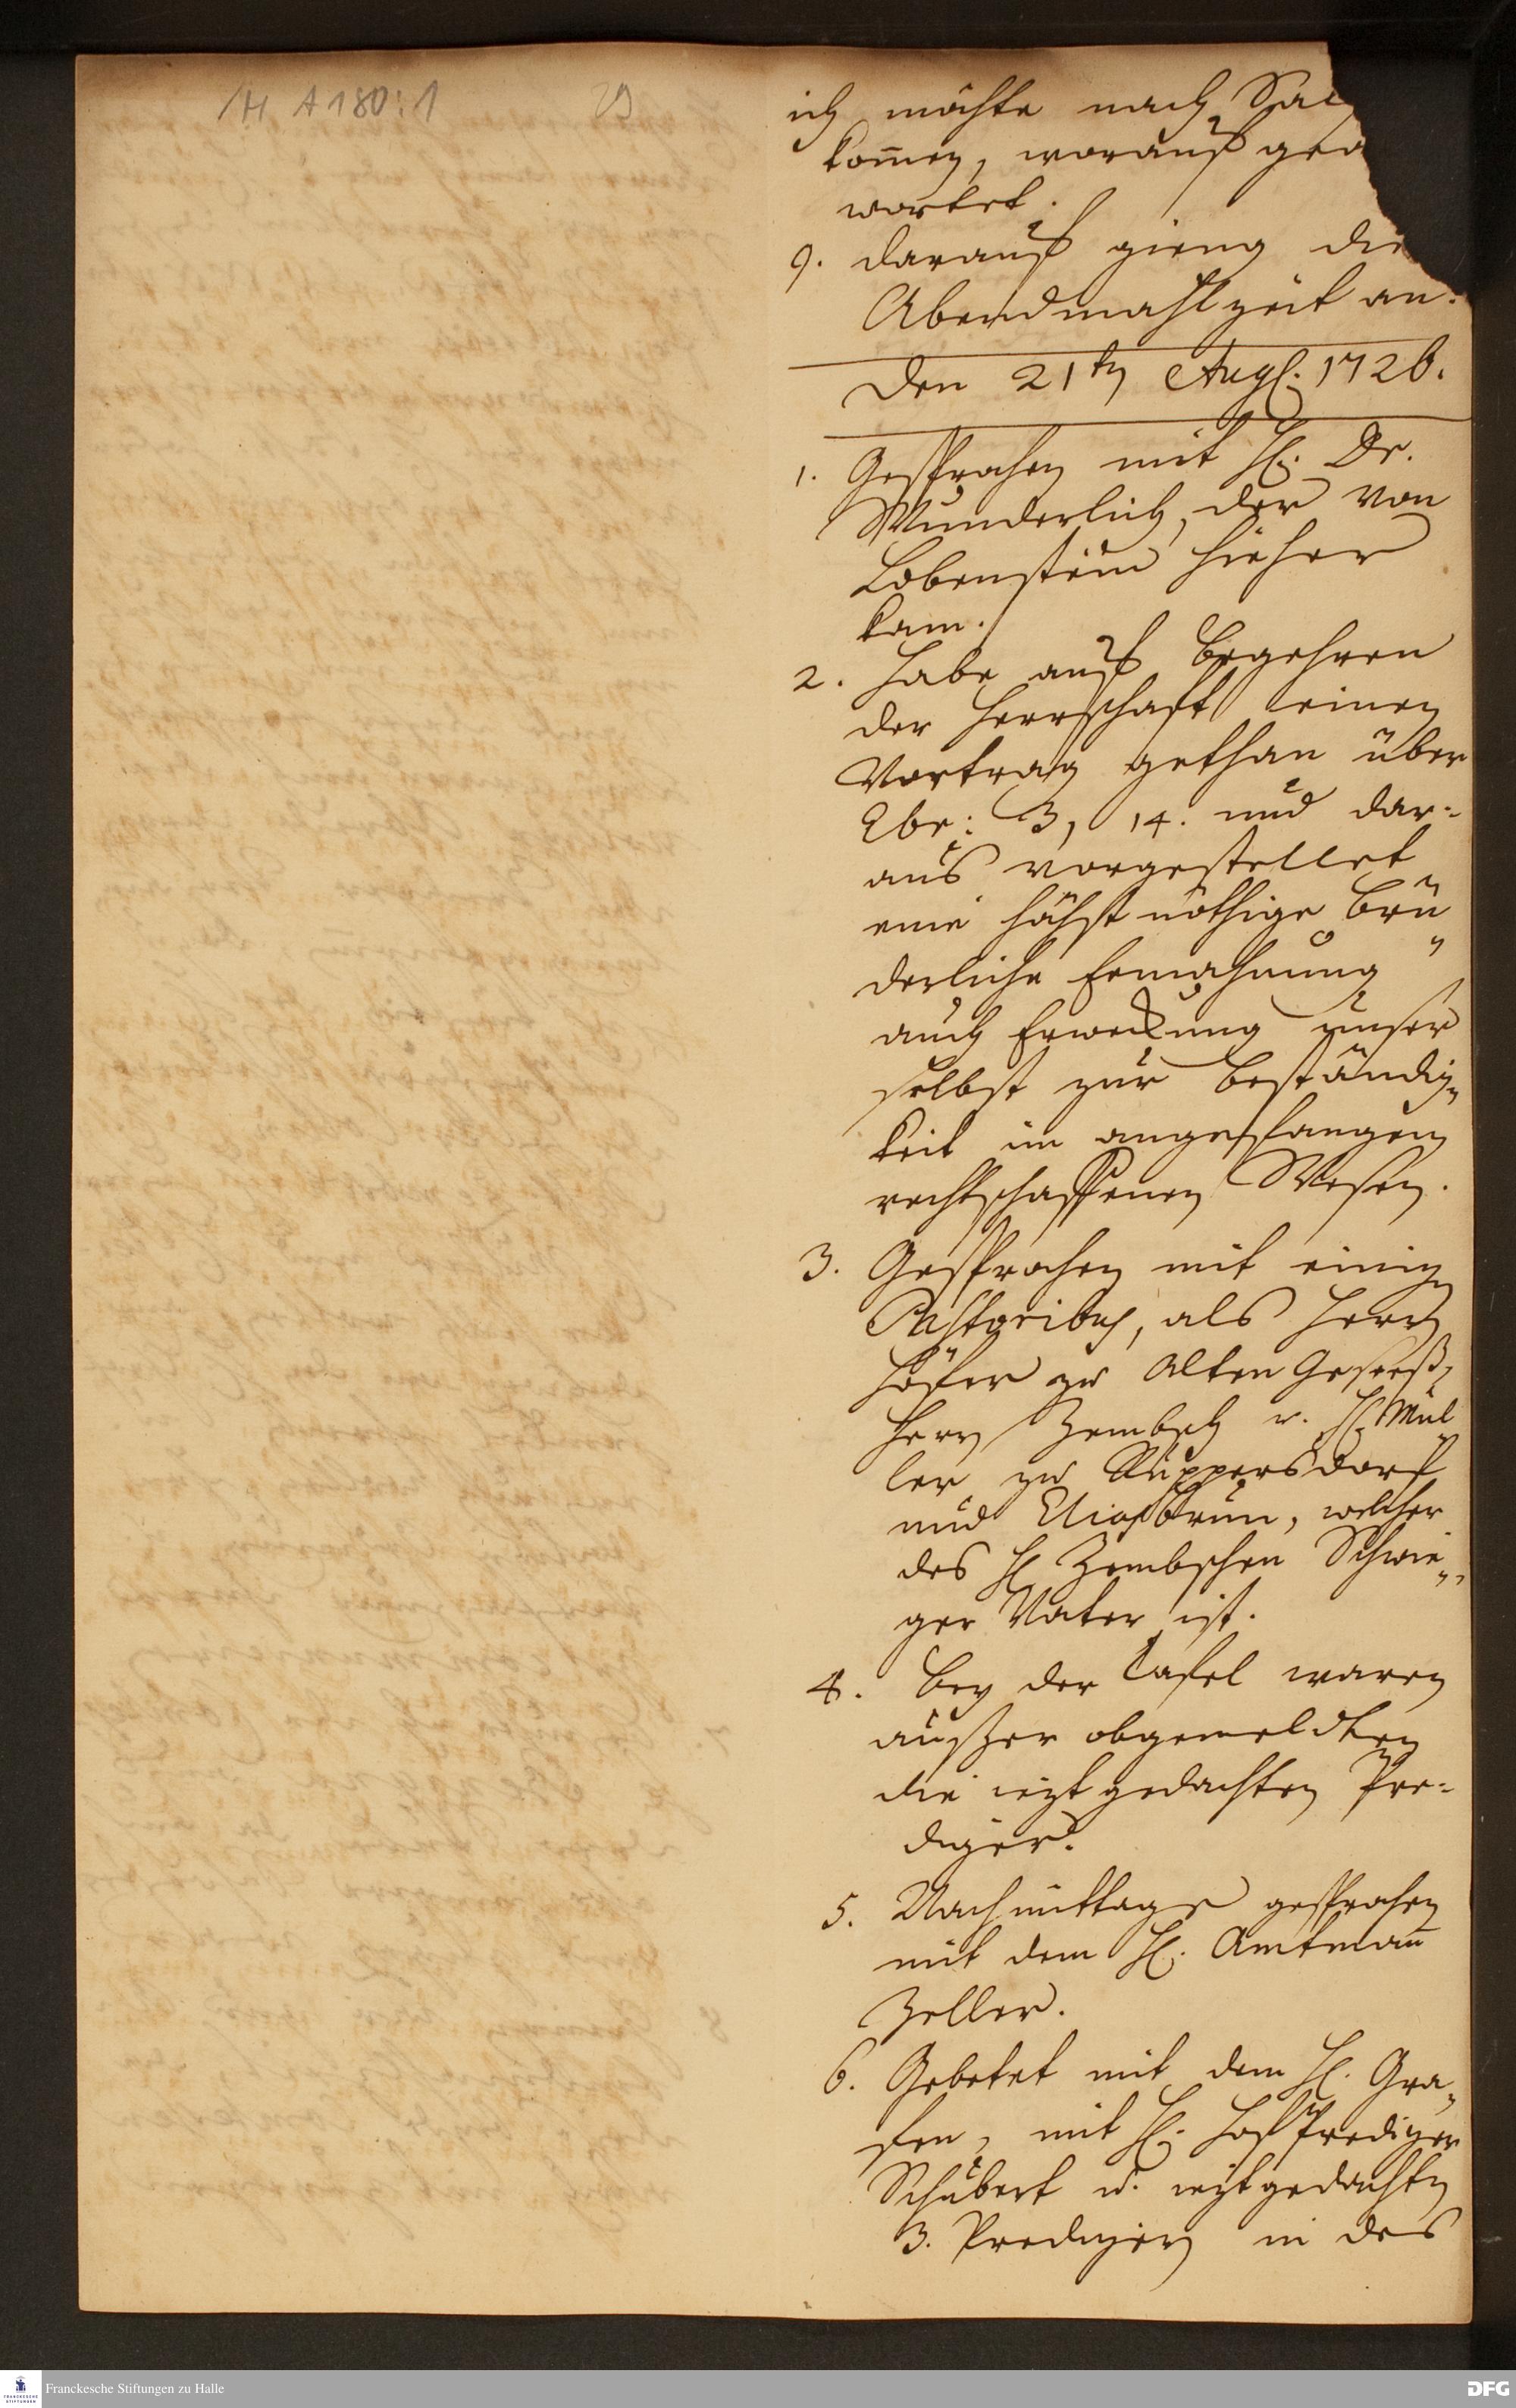 /H A 180:1
29
ich möchte nach Saa
kom̅en, worauf gea
wortet.
9. darauf gieng die
Abendmahlzeit an.
Den 21ten Aug. 1726.
1. Gesprochen mit H. Dr.
Wunderlich, der von
Lobenstein hieher
kam.
2. Habe auf Begehren
der Herrschaft einen
Vortrag gethan über
Ebr: 3, 14. und dar-
aus vorgestellet
eine höchst nöthige Brü
derliche Ermahnung
auch Erweckung unser
selbst zur Beständig
keit im angefangen
rechtschaffenen Wesen.
3. Gesprochen mit einig
Pastoribus, als Herrn
Höfer zu Alten Geseeß,
Herrn Zembsch u. H. Mül
ler zu Ruppersdorf
und Eliasbrun, welcher
des H Zembschen Schwie
ger Vater ist.
4. Bey der Tafel waren
ausser obgemeldten
die iezt gedachten Pre-
diger.
5. Nachmittags gesprochen
mit dem H. Amtman̅
Zeller.
6. Gebetet mit dem H. Gra
fen, mit H. Hof Prediger
Schubert u. iezt gedachten
3. Predigern in des
Franckesche Stiftungen zu Halle
DFG